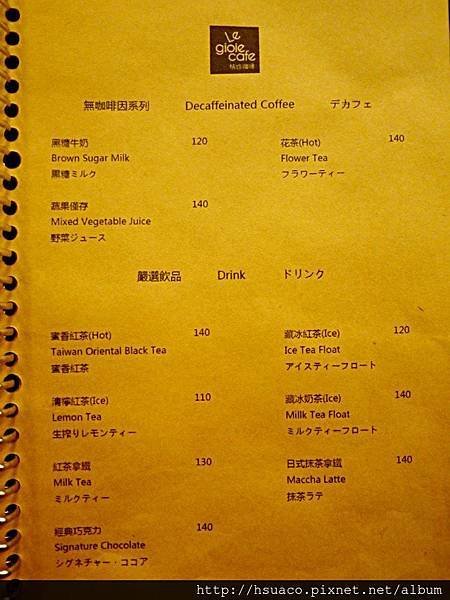 Le
giole
cafe
無咖啡因系列 Decaffeinated Coffee デカフェ
黑糖牛奶 120
Brown Sugar Milk
黒糖ミルク
花茶(Hot) 140
Flower Tea
フラワーティー
蔬果僅存 140
Mixed Vegetable Juice
野菜ジュース
嚴選飲品 Drink ドリンク
蜜香紅茶(Hot) 140
Taiwan Oriental Black Tea
蜜香紅茶
漂冰紅茶(Ice) 120
Ice Tea Float
アイスティーフロート
清檸紅茶(Ice) 110
Lemon Tea
生搾りレモンティー
漂冰奶茶(Ice) 140
Millk Tea Float
ミルクティーフロート
紅茶拿鐵 130
Milk Tea
ミルクティー
日式抹茶拿鐵 140
Maccha Latte
抹茶ラテ
經典巧克力 140
Signature Chocolate
シグネチャー・ココア
http://hsuaco.pixnet.net/album